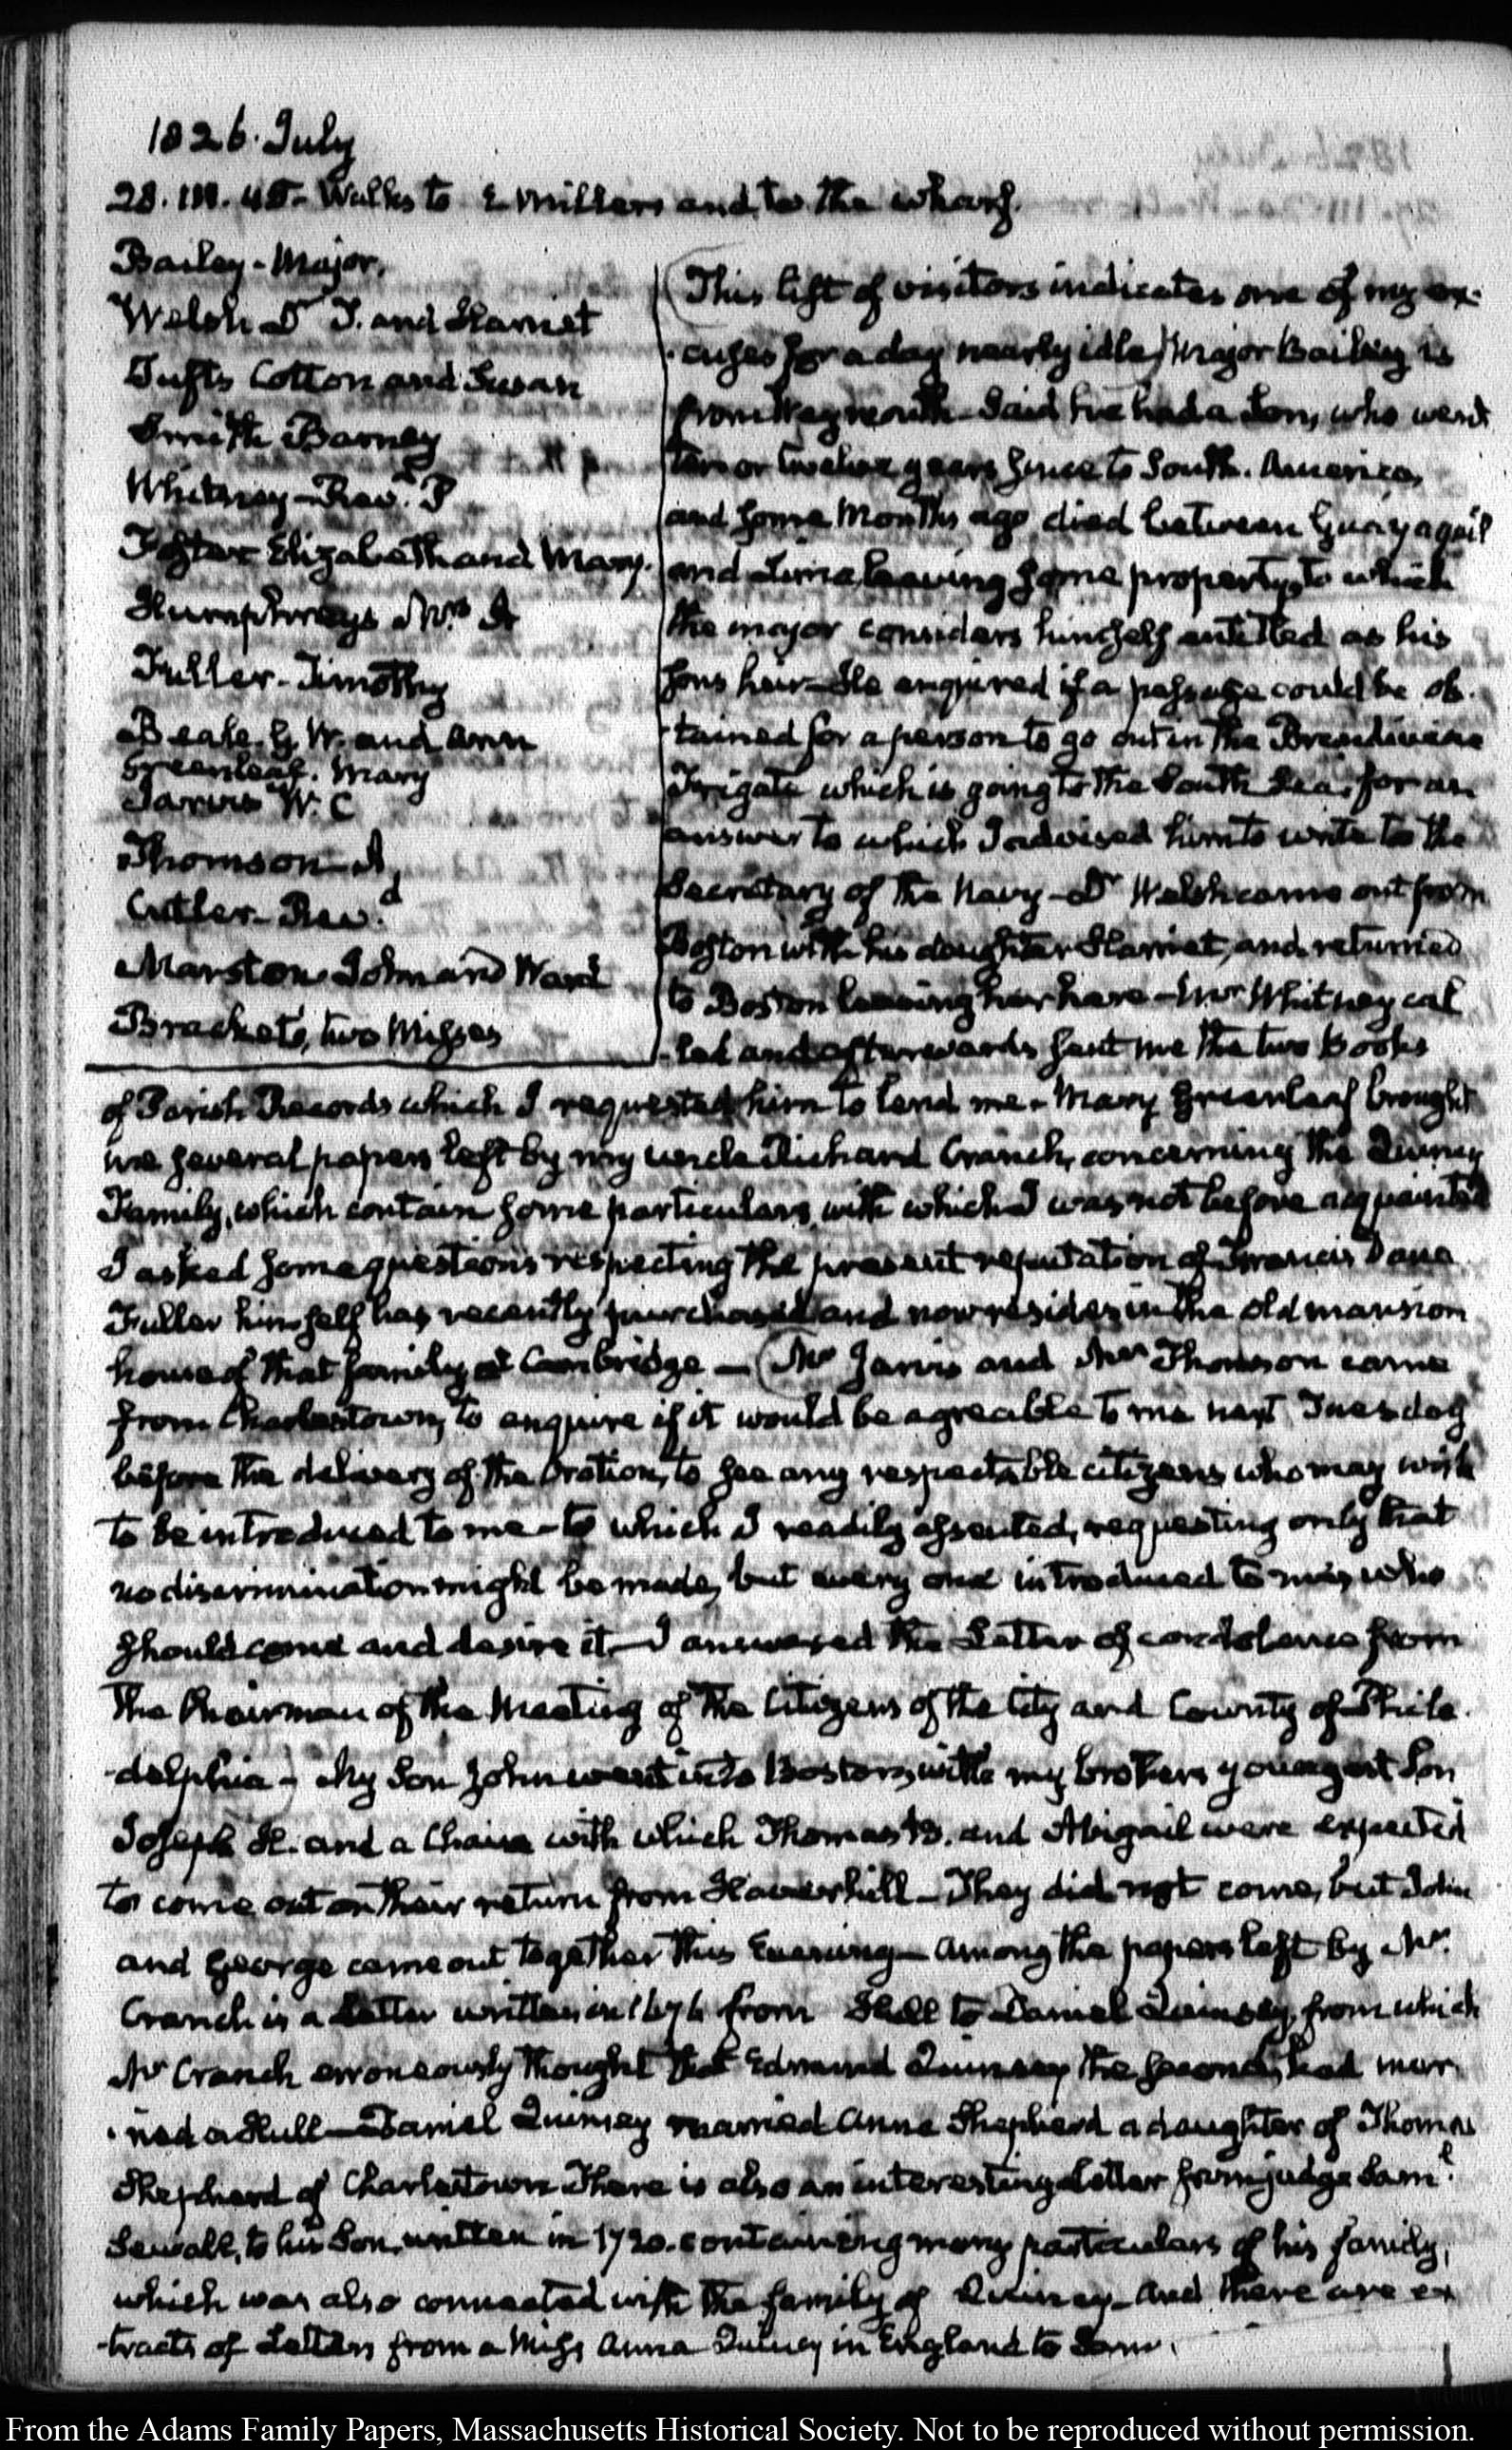 1826. July
28. III. 45. Walks to E Millers and to the wharf.
Bailey - Major.
Welsh Dr T. and Harriet
Tufts Cotton and Susan
Smith Barney
Whitney - Revd. P
Foster Elizabeth and Mary.
Humphreys Mrs
Fuller - Timothy
Beale. G. W. and Ann
Greenleaf. Mary
Jarvis W. C
Thomson - A
Cutler - Revd.
Marston John and Ward
Brackets, two Misses
(This list of visitors indicates one of my ex-
-cuses for a day nearly idle) Major Bailey is
from Weymouth - Said he had a Son, who went
ten or twelve years since to South. America,
and some Months ago died between Guayaquil
and Lima leaving some property, to which
the major considers himself entitled as his
sons heir - He enquired if a passage could be ob-
-tained for a person to go out in the Brandywine
Frigate which is going to the South Sea, for an
answer to which I advised him to write to the
Secretary of the Navy - Dr Welsh came out from
Boston with his daughter Harriet, and returned
to Boston leaving her here - Mr Whitney cal
-led and afterwards sent me the two Books
of Parish Records which I requested him to lend me - Mary Greenleaf brought
me several papers left by my uncle Richard Cranch, concerning the Quincy
Family, which contain some particulars with which I was not before acquainted
I asked some questions respecting the present reputation of Francis Dana
Fuller himself has recently purchased and now resides in the old mansion
house of that family at Cambridge - (Mr Jarvis and Mr Thomson came
from Charlestown, to enquire if it would be agreable to me next Tuesday
before the delivery of the Oration, to see any respectable citizens who may wish
to be introduced to me - to which I readily assented, requesting only that
no discrimination might be made, but every one introduced to me, who
should come and desire it - I answered the Letter of condolence from
the Chairman of the Meeting of the Citizens of the City and County of Phila-
-delphia -) My Son John went into Boston, with my brothers youngest Son
Joseph H. and a Chaise with which Thomas B. and Abigail were expected
to come out on their return from Haverhill - They did not come, but John
and George came out together this Evening - Among the papers left by Mr.
Cranch is a Letter written in 1676 from Hull to Daniel Quinsey, from which
Mr Cranch erroneously thought that Edmund Quinsey the second, had mar
-ried a Hull - Daniel Quinsey married Anne Shepherd a daughter of Thomas
Shepherd of Charlestown There is also an interesting Letter from judge Saml.
Sewall, to his Son, written in 1720. containing many particulars of his family,
which was also connected with the family of Quincy - And there are ex
-tracts of Letters from a Miss Anna Quincy in England to Saml.
From the Adams Family Papers, Massachusetts Historical Society. Not to be reproduced without permission.